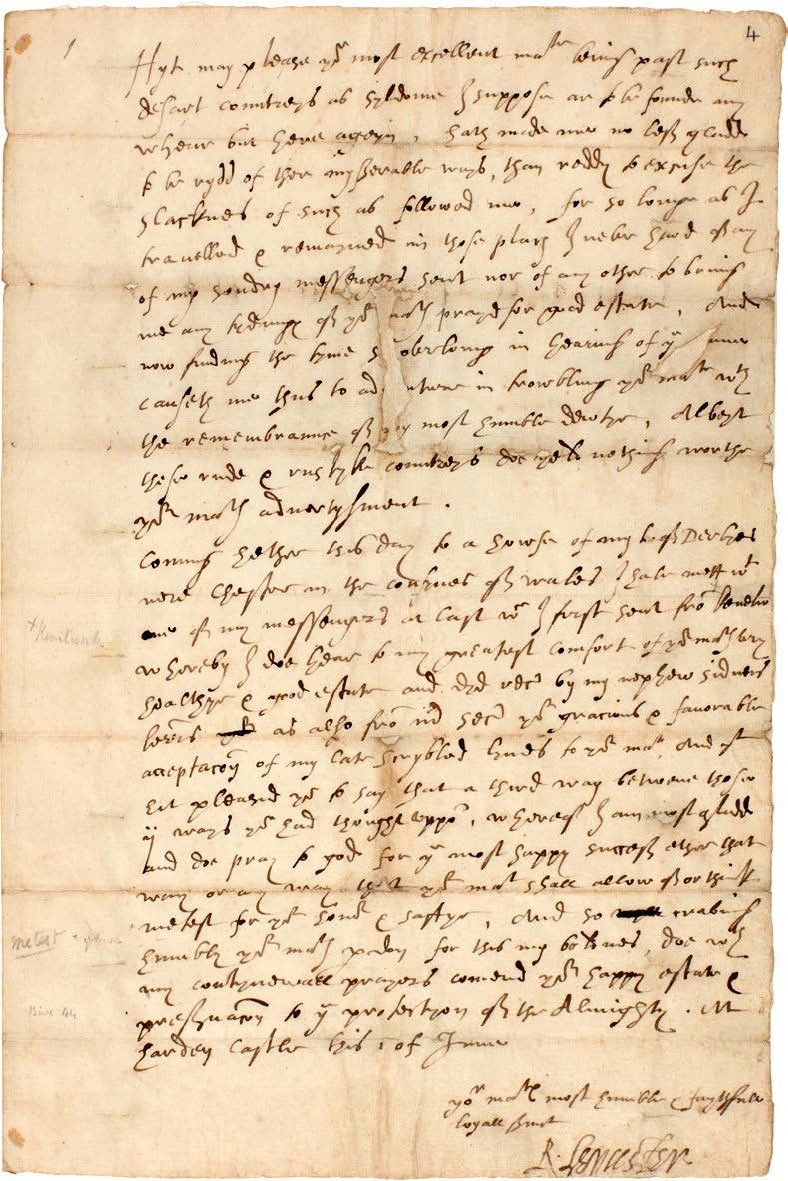 4
Hyt may please yor most excellent matie being past such
desart countreys as syldome I suppose ar to be founde any
wheare but here ageyn, hath made me no less gladde
to be rydd of those myserable ways, than reddy to excuse the
slacknes of such as followed me, for so longe as I
travelled & remayned in those places I never hard of any
of my sondry messengers sent nor of any other to bring
me any tydings of yor maties prayd for good estate, And
now finding the tyme overlong in hearing of ye same
causeth me thus to in trowbling yor matie wth
the remembrance of my most humble dewtye, Albeyt
these rude & rustyke countreys doe yeld nothing worthe
yor maties advertysment.
Coming hether this day to a howse of my L of Derbyes
nere Chester in the confines of wales I have mett wt
one of my messengers at last wc I first sent fro Kenelw
whereby I doe hear to my greatest comfort of yor maties very
healthye & good estate and dyd rece by my nephew sidneis
letters as also fro mr sec yor gracious & favorable
acceptacon of my late scrybled lynes to yor matie, And yt
hit pleasid you to say that a third way betwene those
ij ways you had thought uppon, whereof I am most gladde
and doe pray to god for ye most happy success ether that
way or any way that yor matie shall allow of or think
metest for yor honor & saftye, And so craving
humbly yor maties pdon for this my boldnes, doe wth
my contynewall prayers comend yor happy estate &
preservacon to ye protectyon of the Almighty. At
harden castle this 1 of June
yor maties most humble & faythfull
loyall srvnt
R. Leycester
x Kenilworth
metest